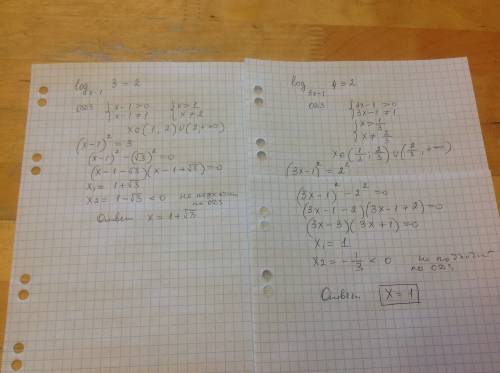 log_{x-1} 3 = 2
ОДЗ { x-1 > 0 { x > 1
x-1 ≠ 1 x ≠ 2
x∈(1; 2)∪(2; +∞)
(x-1)² = 3
(x-1)² - (√3)² = 0
(x-1-√3)(x-1+√3)=0
x₁ = 1+√3
x₂ = 1-√3 < 0 не подходит
по ОДЗ
Ответ x = 1+√3
log_{3x-1} 4 = 2
ОДЗ { 3x-1 > 0
3x-1 ≠ 1
{ x > 1/3
x ≠ 2/3
x∈(1/3; 2/3)∪(2/3; +∞)
(3x-1)² = 2²
(3x-1)² - 2² = 0
(3x-1-2)(3x-1+2)=0
(3x-3)(3x+1)=0
x₁ = 1
x₂ = -1/3 < 0 не подходит
по ОДЗ
Ответ x = 1